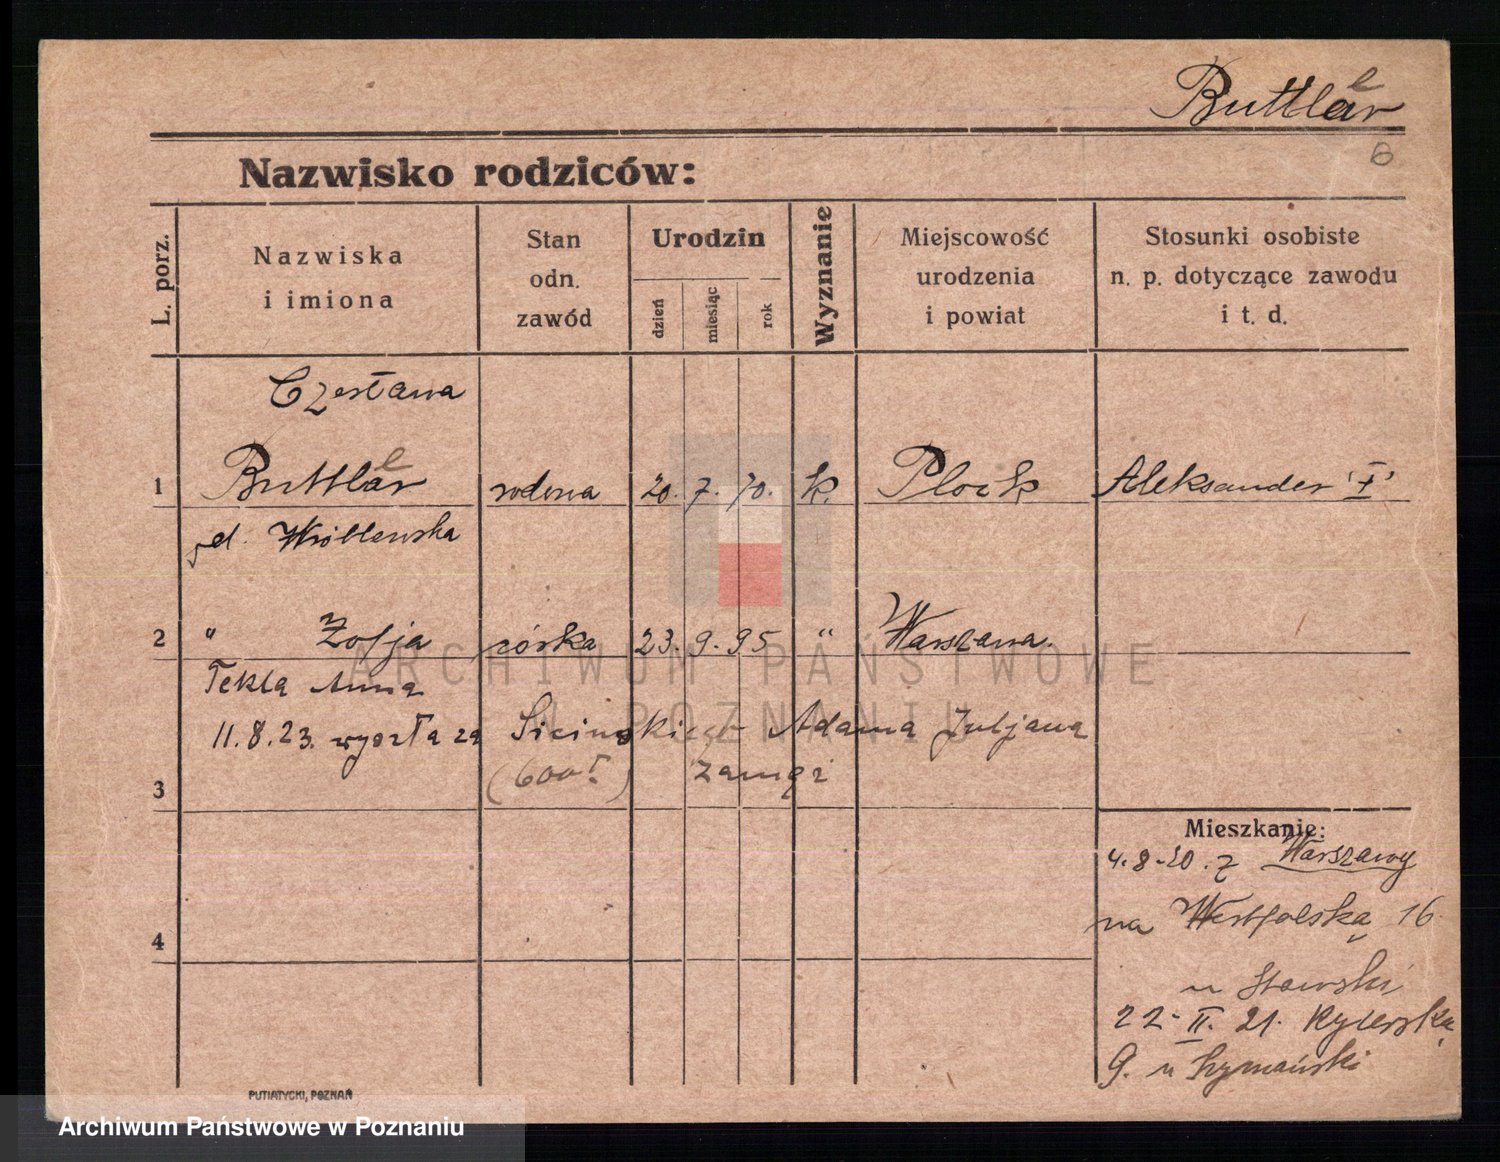 Buttlar
e
6
Nazwisko rodziców:
L. porz.
Nazwiska
i imiona
Stan
odn.
zawód
Urodzin
dzień
miesiąc
rok
Wyznanie
Miejscowość
urodzenia
i powiat
Stosunki osobiste
n. p. dotyczące zawodu
i t. d.
Czesława
e
1 Buttlar wdowa 20. 7. 70. k. Płock Aleksander "I"
Wróblewska
2 " Zofja córka 23. 9. 95 " Warszawa.
Tekla Anna
11.8.23. wyszła za Sicinskiego Adama Juljana
3
4
Mieszkanie:
4.8-20. z Warszawy
na Westfolską 16
u Stawski
22-II. 21. Rycerska
9. u Szymański
PUTIATYCKI, POZNAŃ
ARCHIWUM PAŃSTWOWE
W POZNANIU
Archiwum Państwowe w Poznaniu